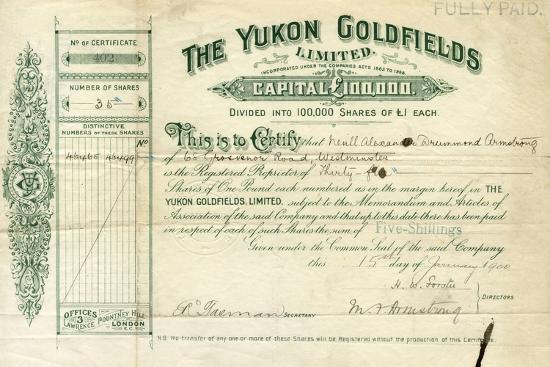 FULLY PAID.
Nº OF CERTIFICATE
402
NUMBER OF SHARES
35
DISTINCTIVE
NUMBERS OF THESE SHARES
Nº
45465 45499
OFFICES
3
LAWRENCE POUNTNEY HILL
LONDON
E.C.
THE YUKON GOLDFIELDS
LIMITED.
INCORPORATED UNDER THE COMPANIES ACTS 1862 TO 1898.
CAPITAL £100,000.
DIVIDED INTO 100,000 SHARES OF £1 EACH.
This is to Certify that Neill Alexander Drummond Armstrong
of 60 Grosvenor Road, Westminster
is the Registered Proprietor of Thirty-
Shares of One Pound each numbered as in the margin hereof in THE
YUKON GOLDFIELDS, LIMITED, subject to the Memorandum and Articles of
Association of the said Company and that up to this date there has been paid
in respect of each of such Shares the sum of Five-Shillings
Given under the Common Seal of the said Company
this 15th day of January 1900
H. W. Forster
DIRECTORS
SECRETARY
Armstrong
N.B. No transfer of any one or more of these Shares will be Registered without the production of this Certificate.